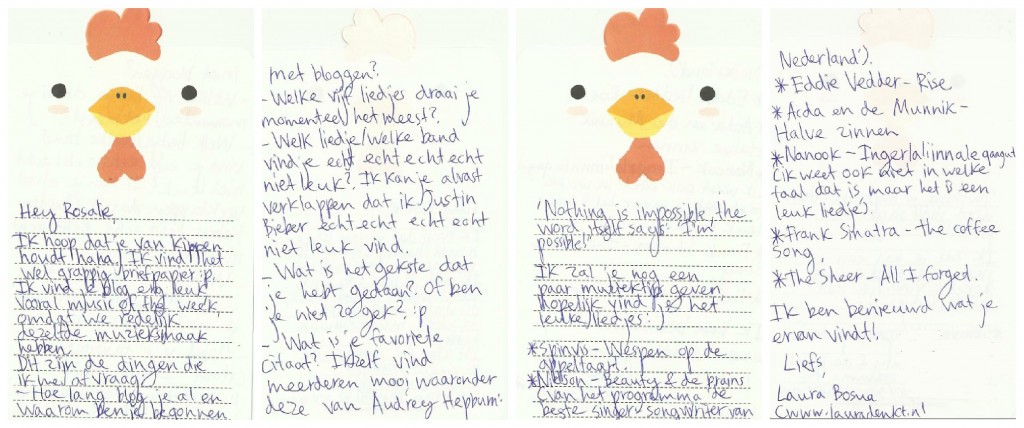 Hey Rosalie,
Ik hoop dat je van kippen
houdt haha! Ik vind het
wel grappig briefpapier :p.
Ik vind je blog erg leuk
vooral music of the week,
omdat we redelijk
dezelfde muzieksmaak
hebben.
Dit zijn de dingen die
ik me af vraag:
- Hoe lang blog je al en
waarom ben je begonnen
met bloggen?
- Welke vijf liedjes draai je
momenteel het meest?
- Welk liedje/welke band
vind je echt echt echt echt
niet leuk? Ik kan je alvast
verklappen dat ik Justin
Bieber echt echt echt echt
niet leuk vind.
- Wat is het gekste dat
je hebt gedaan? Of ben
je niet zo gek? :p
- Wat is je favoriete
citaat? Ikzelf vind
meerderen mooi waaronder
deze van Audrey Hepburn:
'Nothing is impossible, the
word itself says: 'I'm
possible!'
Ik zal je nog een
paar muziektips geven
hopelijk vind je het
leuke liedjes :)
* Spinvis - Wespen op de
appeltaart.
* Nielson - beauty & de brains
(van het programma 'de
beste singer-songwriter van
Nederland').
* Eddie Vedder - Rise
* Acda en de Munnik -
Halve zinnen
* Nanook - Ingerlaliinnaleqaagut
(ik weet ook niet in welke
taal dat is, maar het is een
leuk liedje).
* Frank Sinatra - the coffee
song
* The Sheer - All I forged.
Ik ben benieuwd wat je
ervan vindt!
Liefs,
Laura Bosua
(www.lauradenkt.nl